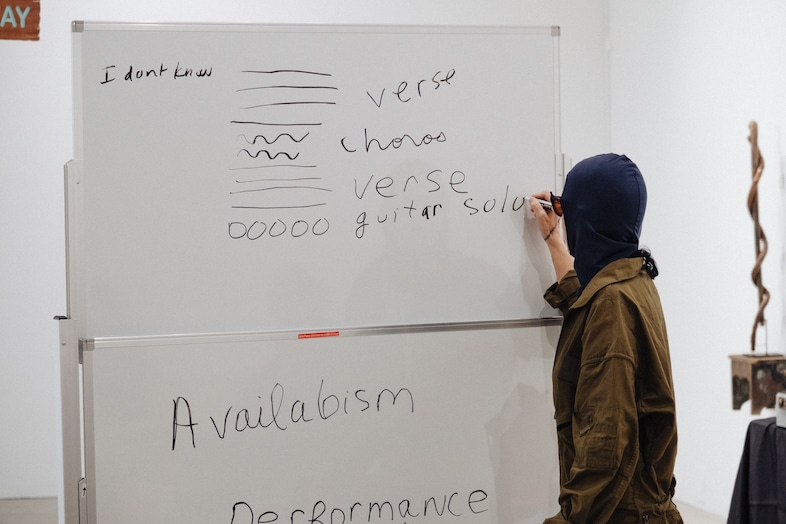 AY
I dont know
verse
choros
verse
guitar solo
Availabism
Performance